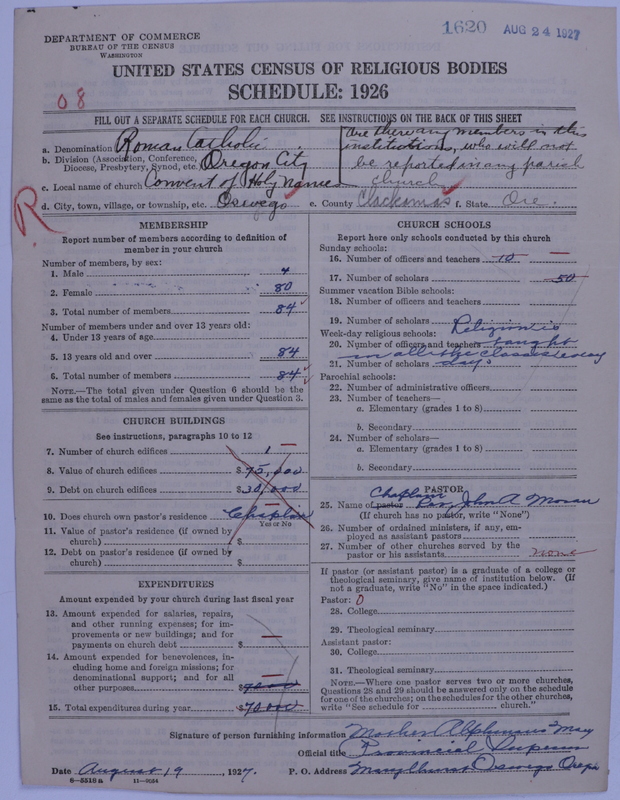 1620 AUG 24 1927
DEPARTMENT OF COMMERCE
BUREAU OF THE CENSUS
WASHINGTON
UNITED STATES CENSUS OF RELIGIOUS BODIES
SCHEDULE: 1926
08
FILL OUT A SEPARATE SCHEDULE FOR EACH CHURCH. SEE INSTRUCTIONS ON THE BACK OF THIS SHEET
a. Denomination Roman Catholic
b. Division (Association, Conference, Diocese, Presbytery, Synod, etc. Oregon City
Are there any members in this
institutions, who will not
be reported in any parish
church
c. Local name of church Convent of Holy Names
d. City, town, village, or township, etc. Oswego e. County Clackamas f. State Ore.
R
MEMBERSHIP
Report number of members according to definition of
member in your church
Number of members, by sex:
1. Male 4
2. Female 80
3. Total number of members 84
Number of members under and over 13 years old:
4. Under 13 years of age
5. 13 years old and over 84
6. Total number of members 84
NOTE.—The total given under Question 6 should be the
same as the total of males and females given under Question 3.
CHURCH BUILDINGS
See instructions, paragraphs 10 to 12
7. Number of church edifices 1
8. Value of church edifices $ 75,000
9. Debt on church edifices $ 30,000
10. Does church own pastor's residence Chaplin
Yes or No
11. Value of pastor's residence (if owned by
church) $
12. Debt on pastor's residence (if owned by
church) $
EXPENDITURES
Amount expended by your church during last fiscal year
13. Amount expended for salaries, repairs,
and other running expenses; for im-
provements or new buildings; and for
payments on church debt $ —
14. Amount expended for benevolences, in-
cluding home and foreign missions; for
denominational support; and for all
other purposes $ 70.000
15. Total expenditures during year $ 70000
CHURCH SCHOOLS
Report here only schools conducted by this church
Sunday schools:
16. Number of officers and teachers 10 —
17. Number of scholars 50
Summer vacation Bible schools:
18. Number of officers and teachers
19. Number of scholars
Week-day religious schools: Religion is
20. Number of officers and teachers taught
in all the classes every
21. Number of scholars day
Parochial schools:
22. Number of administrative officers
23. Number of teachers—
a. Elementary (grades 1 to 8)
b. Secondary
24. Number of scholars—
a. Elementary (grades 1 to 8)
b. Secondary
PASTOR
Chaplain
25. Name of pastor Rev. John A Moran
(If church has no pastor, write "None")
26. Number of ordained ministers, if any, em-
ployed as assistant pastors
27. Number of other churches served by the
pastor or his assistants none
If pastor (or assistant pastor) is a graduate of a college or
theological seminary, give name of institution below. (If
not a graduate, write "No" in the space indicated.)
Pastor: 0
28. College
29. Theological seminary
Assistant pastor:
30. College
31. Theological seminary
NOTE.—Where one pastor serves two or more churches,
Questions 28 and 29 should be answered only on the schedule
for one of the churches; on the schedules for the other churches,
write "See schedule for church."
Signature of person furnishing information Mother Alphonsus Mary
Official title Provincial Superior
Date August 19, 1927. P. O. Address Marylhurst Oswego Oregon
8—5518 a 11—9024